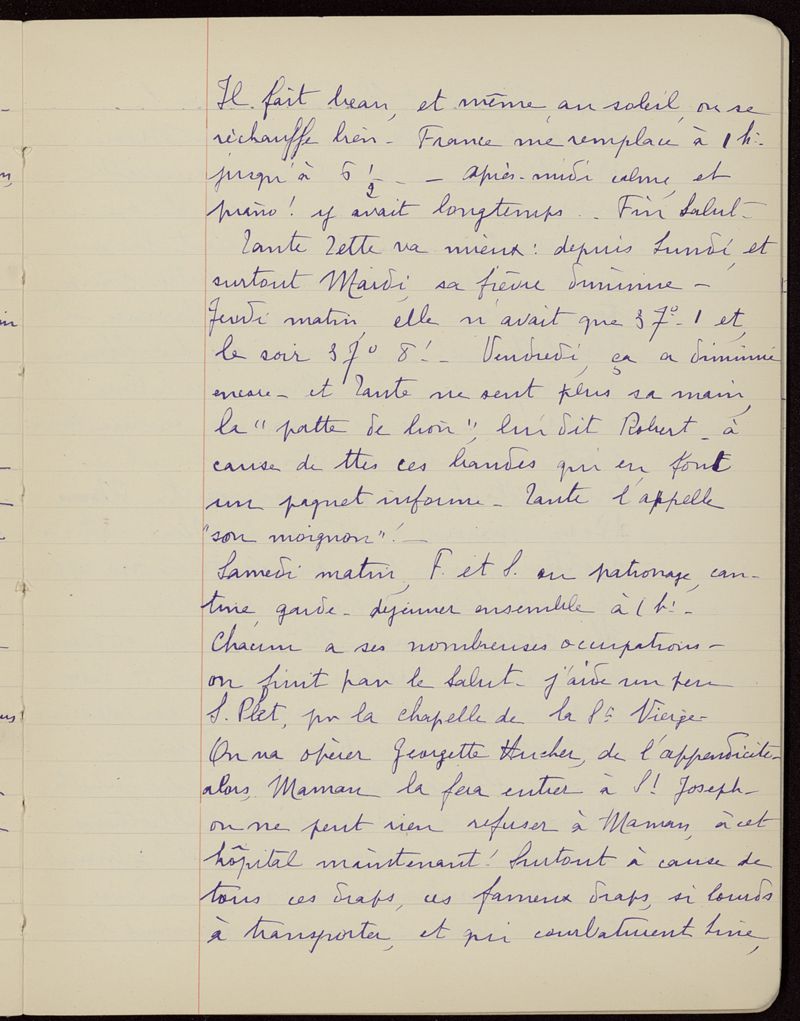 Il fait beau, et même, au soleil, on se
réchauffe bien - France me remplace à 1 h.-
jusqu'à 6 1/2 - - après-midi calme, et
piano ! y avait longtemps .. Fin Salut -
Tante Zette va mieux : depuis Lundi, et
surtout Mardi, sa fièvre diminue -
Jeudi matin, elle n'avait que 37°-1 et,
le soir 37° 8 ! - Vendredi, ça a diminué
encore - et Tante ne sent plus sa main,
la "patte de lion", lui dit Robert - à
cause de ttes ces bandes qui en font
un paquet informe - Tante l'appelle
"son moignon" ! -
Samedi matin, F. et S. au patronage, can-
tine, garde - déjeuner ensemble à 1 h ! -
Chacun a ses nombreuses occupations -
on finit par le Salut - j'aide un peu
S. Plet, pr la chapelle de la Ste Vierge -
On va opérer Georgette Hucher, de l'appendicite -
alors, Maman la fera entrer à St Joseph -
on ne peut rien refuser à Maman, à cet
hôpital maintenant ! Surtout à cause de
tous ces draps, ces fameux draps, si lourds
à transporter, et qui courbaturent Line,